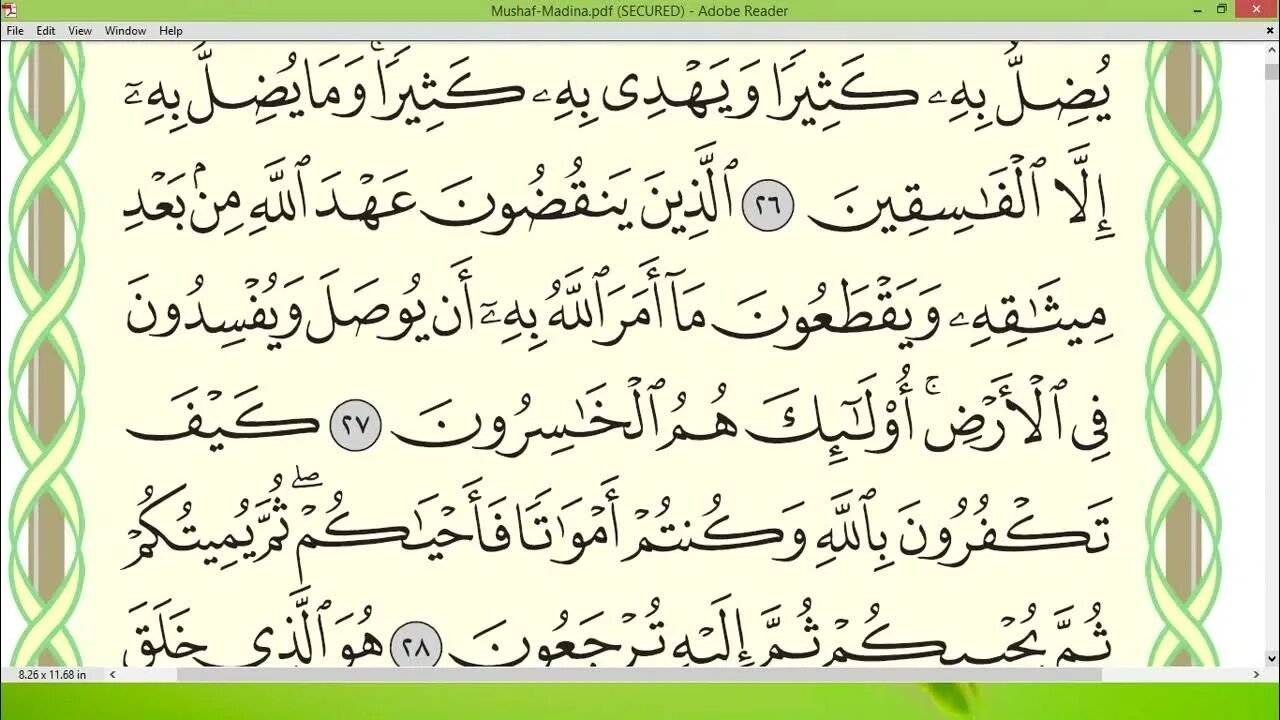 Mushaf-Madina.pdf (SECURED) - Adobe Reader
File Edit View Window Help
يُضِلُّ بِهِۦ كَثِيرًا وَيَهْدِى بِهِۦ كَثِيرًاۚ وَمَا يُضِلُّ بِهِۦٓ
إِلَّا ٱلْفَٰسِقِينَ ٢٦ ٱلَّذِينَ يَنقُضُونَ عَهْدَ ٱللَّهِ مِنۢ بَعْدِ
مِيثَٰقِهِۦ وَيَقْطَعُونَ مَآ أَمَرَ ٱللَّهُ بِهِۦٓ أَن يُوصَلَ وَيُفْسِدُونَ
فِى ٱلْأَرْضِۚ أُو۟لَٰٓئِكَ هُمُ ٱلْخَٰسِرُونَ ٢٧ كَيْفَ
تَكْفُرُونَ بِٱللَّهِ وَكُنتُمْ أَمْوَٰتًا فَأَحْيَٰكُمْۖ ثُمَّ يُمِيتُكُمْ
ثُمَّ يُحْيِيكُمْ ثُمَّ إِلَيْهِ تُرْجَعُونَ ٢٨ هُوَ ٱلَّذِى خَلَقَ
8.26 x 11.68 in